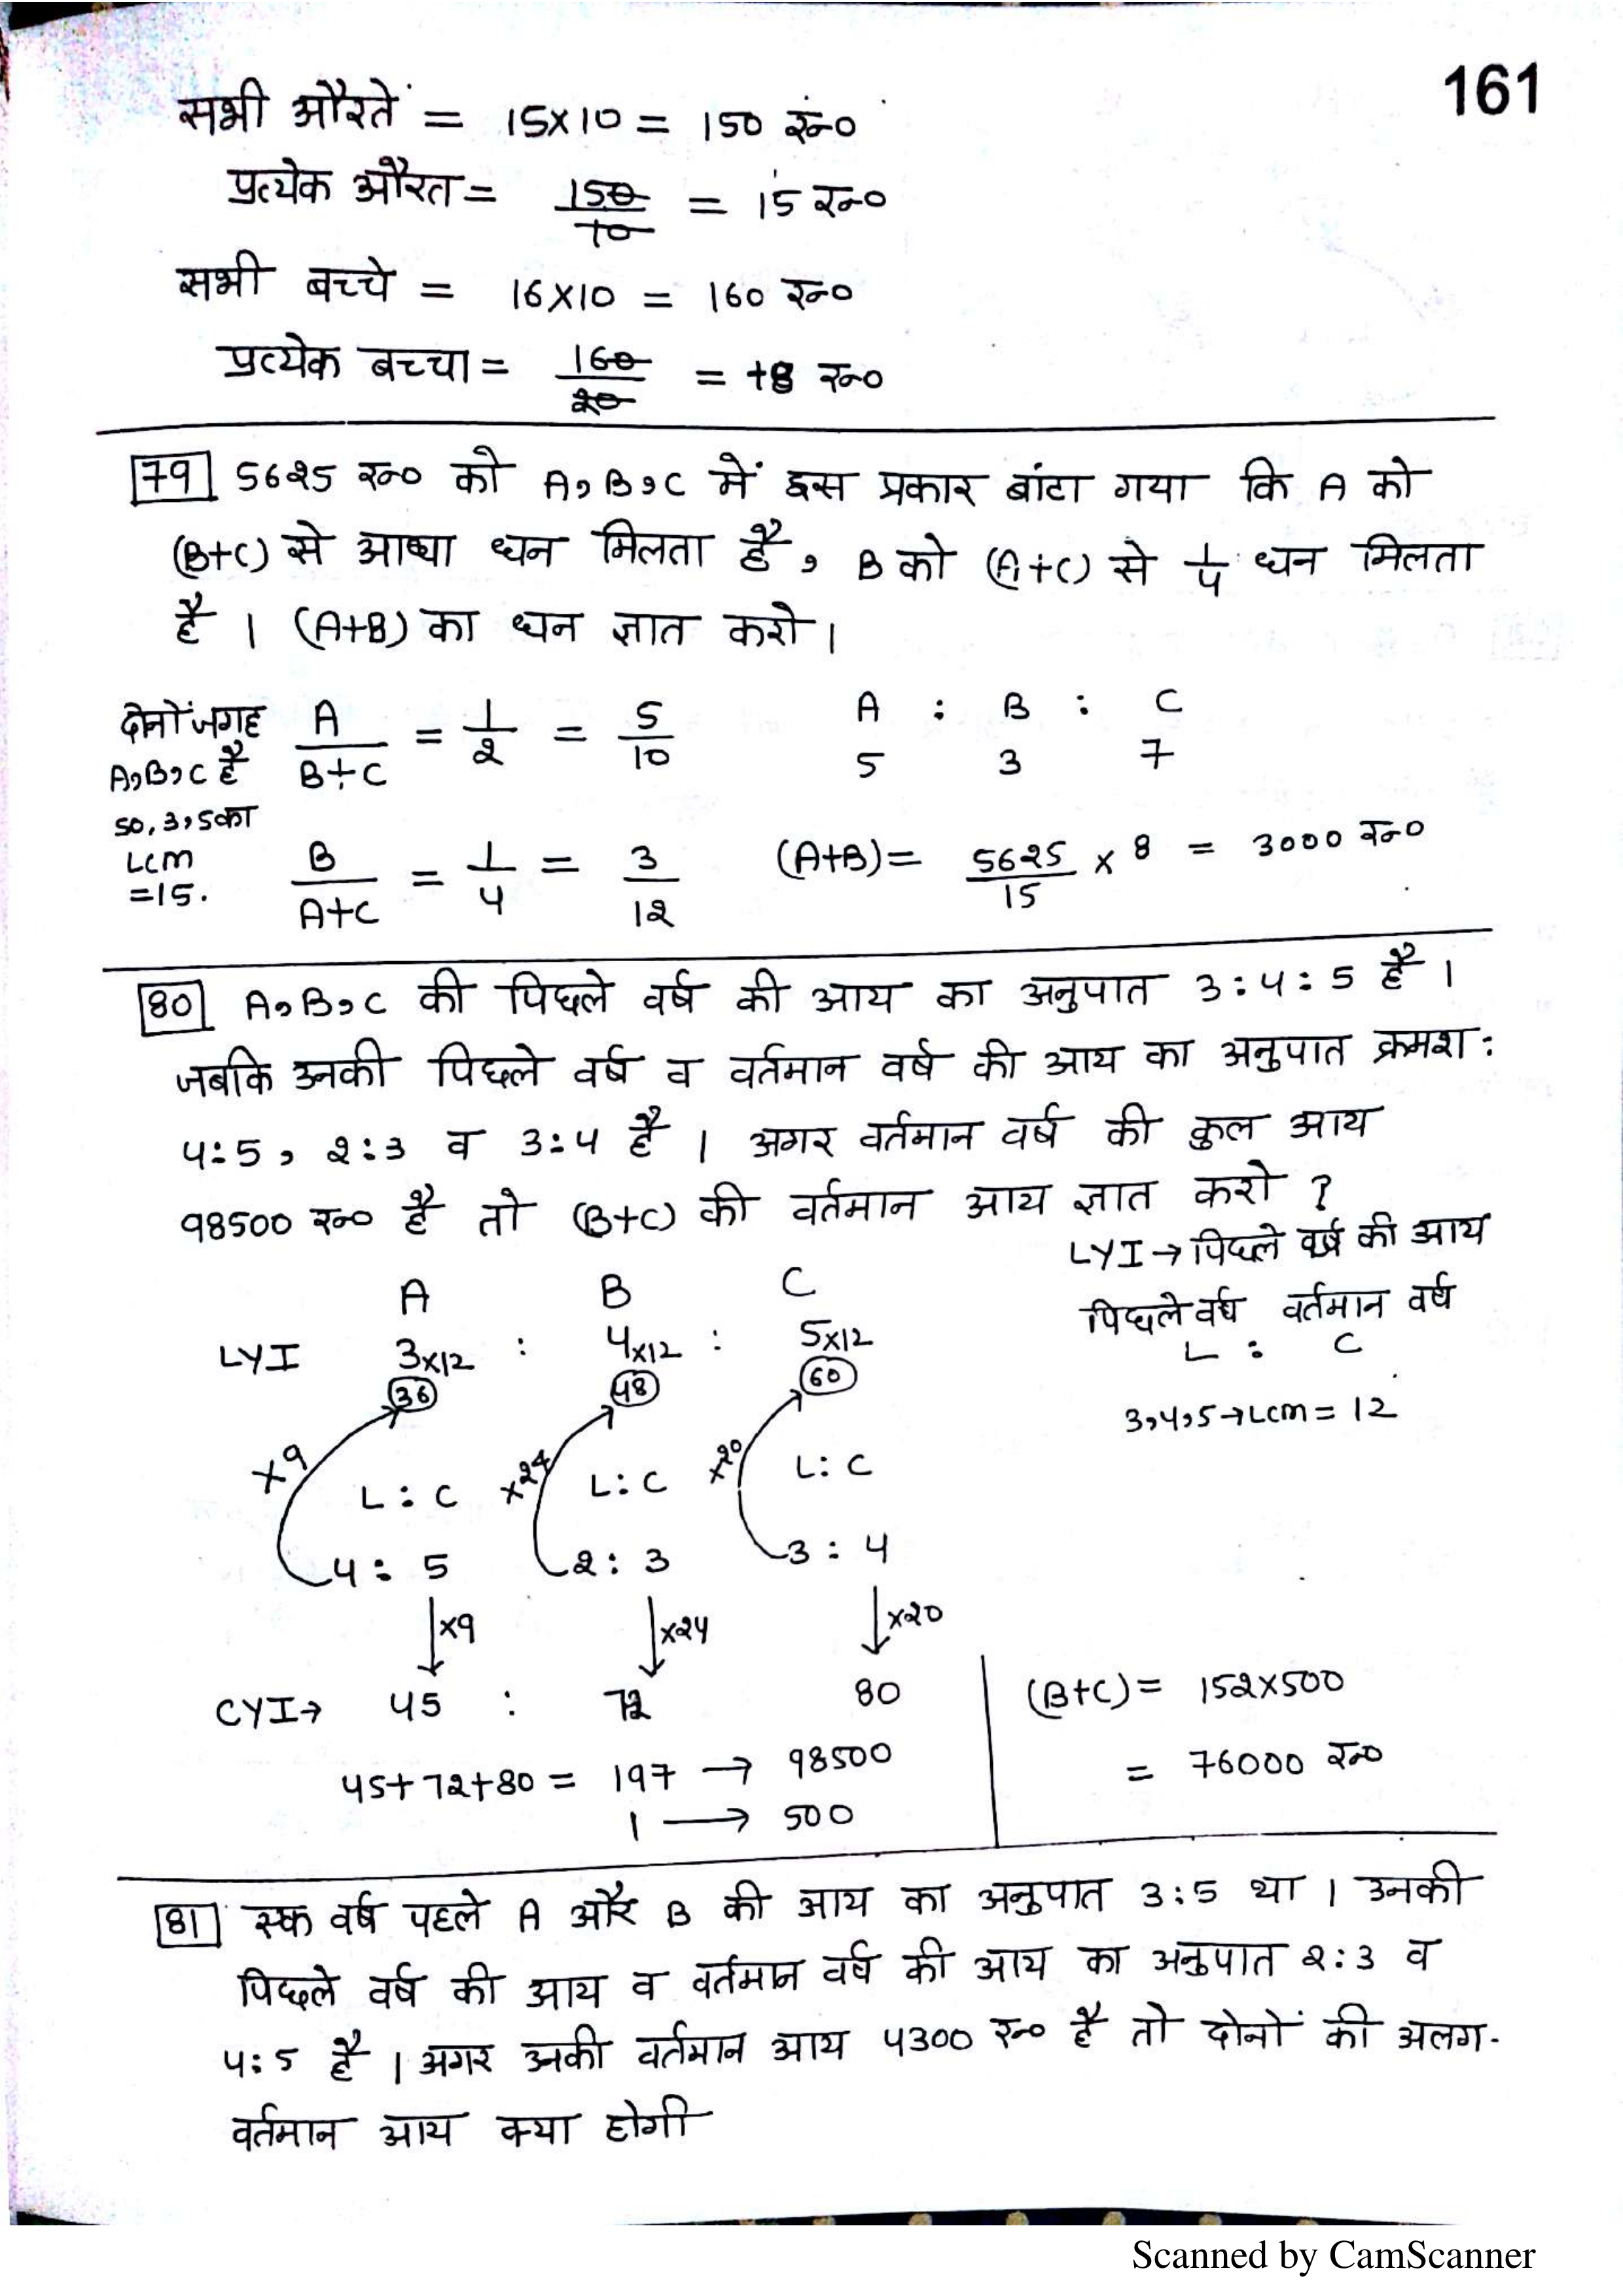 161
सभी औरतें = 15×10 = 150 रु०
प्रत्येक औरत = 150/10 = 15 रु०
सभी बच्चे = 16×10 = 160 रु०
प्रत्येक बच्चा = 160/20 = 8 रु०
79 5625 रु० को A,B,C में इस प्रकार बांटा गया कि A को
(B+C) से आधा धन मिलता है, B को (A+C) से 1/4 धन मिलता
है । (A+B) का धन ज्ञात करो ।
दोनों जगह A/B+C = 1/2 = 5/10 A : B : C
A,B,C है 5 3 7
so, 3,5 का
LCM B/A+C = 1/4 = 3/12 (A+B) = 5625/15 × 8 = 3000 रु०
=15.
80 A,B,C की पिछले वर्ष की आय का अनुपात 3:4:5 है ।
जबकि उनकी पिछले वर्ष व वर्तमान वर्ष की आय का अनुपात क्रमश:
4:5, 2:3 व 3:4 है । अगर वर्तमान वर्ष की कुल आय
98500 रु० है तो (B+C) की वर्तमान आय ज्ञात करो ?
LYI → पिछले वर्ष की आय
A B C पिछले वर्ष वर्तमान वर्ष
LYI 3×12 : 4×12 : 5×12 L : C
36 48 60
3,4,5→LCM = 12
×9 L : C ×24 L : C ×20 L : C
4 : 5 2 : 3 3 : 4
↓×9 ↓×24 ↓×20
CYI→ 45 : 72 80 (B+C) = 152×500
45+72+80 = 197 → 98500 = 76000 रु०
1 → 500
81 एक वर्ष पहले A और B की आय का अनुपात 3:5 था । उनकी
पिछले वर्ष की आय व वर्तमान वर्ष की आय का अनुपात 2:3 व
4:5 है । अगर उनकी वर्तमान आय 4300 रु० है तो दोनों की अलग-
वर्तमान आय क्या होगी
Scanned by CamScanner